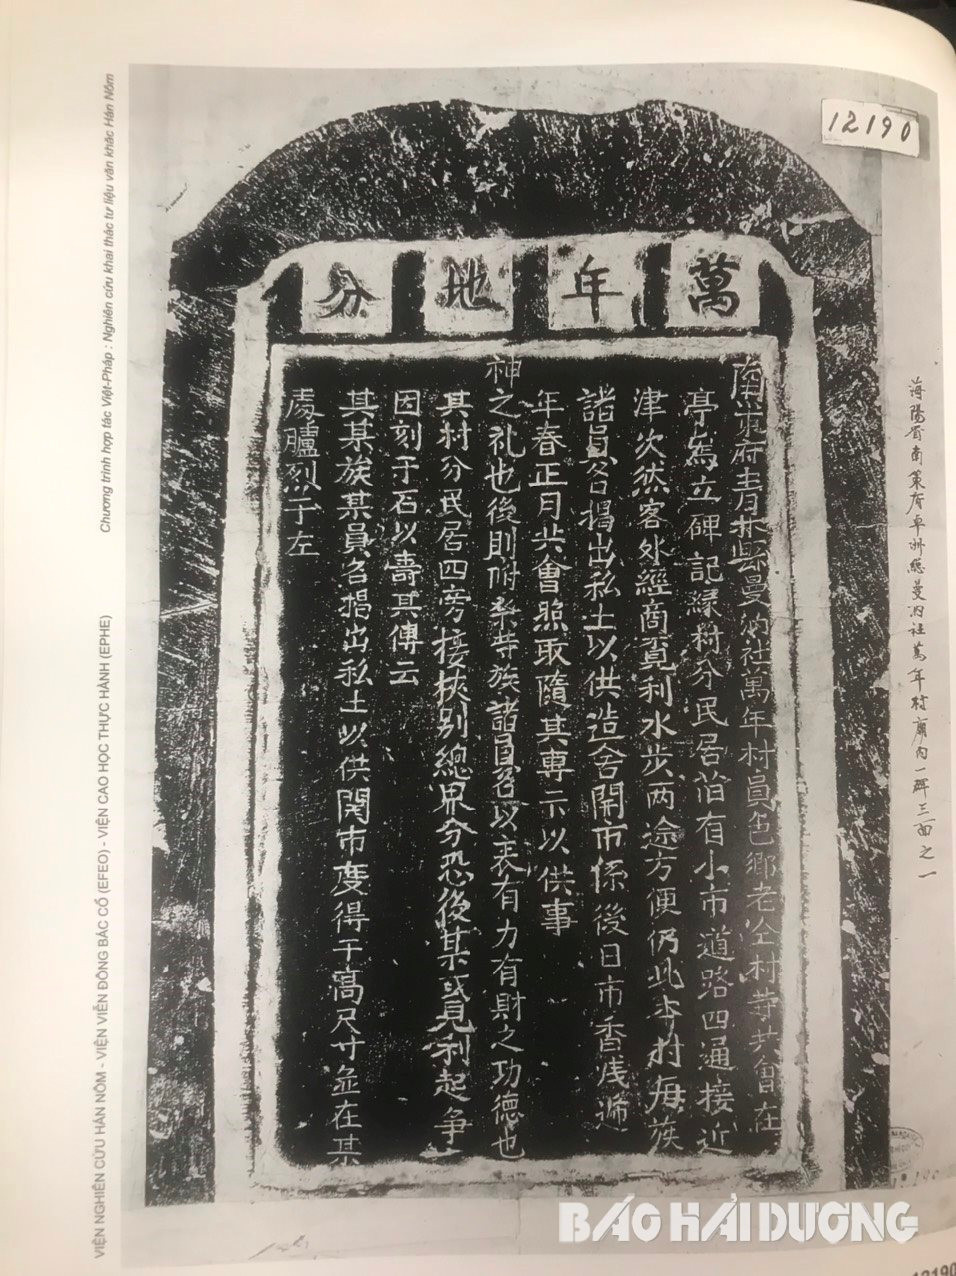 12190
萬年地分
南策府青林縣曼汭社萬年村員色鄉老仝村等共會在
亭爲立碑記緣村分民居泊有小市道路四通接近
津次然客外經商覓利水步兩途方便仍此本村每族
諸員名揭出私土以供造舍開市係後日市香浅遞
年春正月共會照取隨其專示以供事
神之礼也後則附祭等族諸員名以表有力有財之功德也
其村分民居四旁接挾别總界分恐後某或見利起爭
因刻于石以壽其傳云
某某族某員名揭出私土以供開市度得干高尺寸並在某
處臚烈于左
海陽省南策府卓洲總曼汭社萬年村廟内一碑三面之一
Chương trình hợp tác Việt-Pháp : Nghiên cứu khai thác tư liệu văn khắc Hán Nôm
VIỆN NGHIÊN CỨU HÁN NÔM - VIỆN VIỄN ĐÔNG BÁC CỔ (EFEO) - VIỆN CAO HỌC THỰC HÀNH (EPHE)
BÁO HẢI DƯƠNG
12190